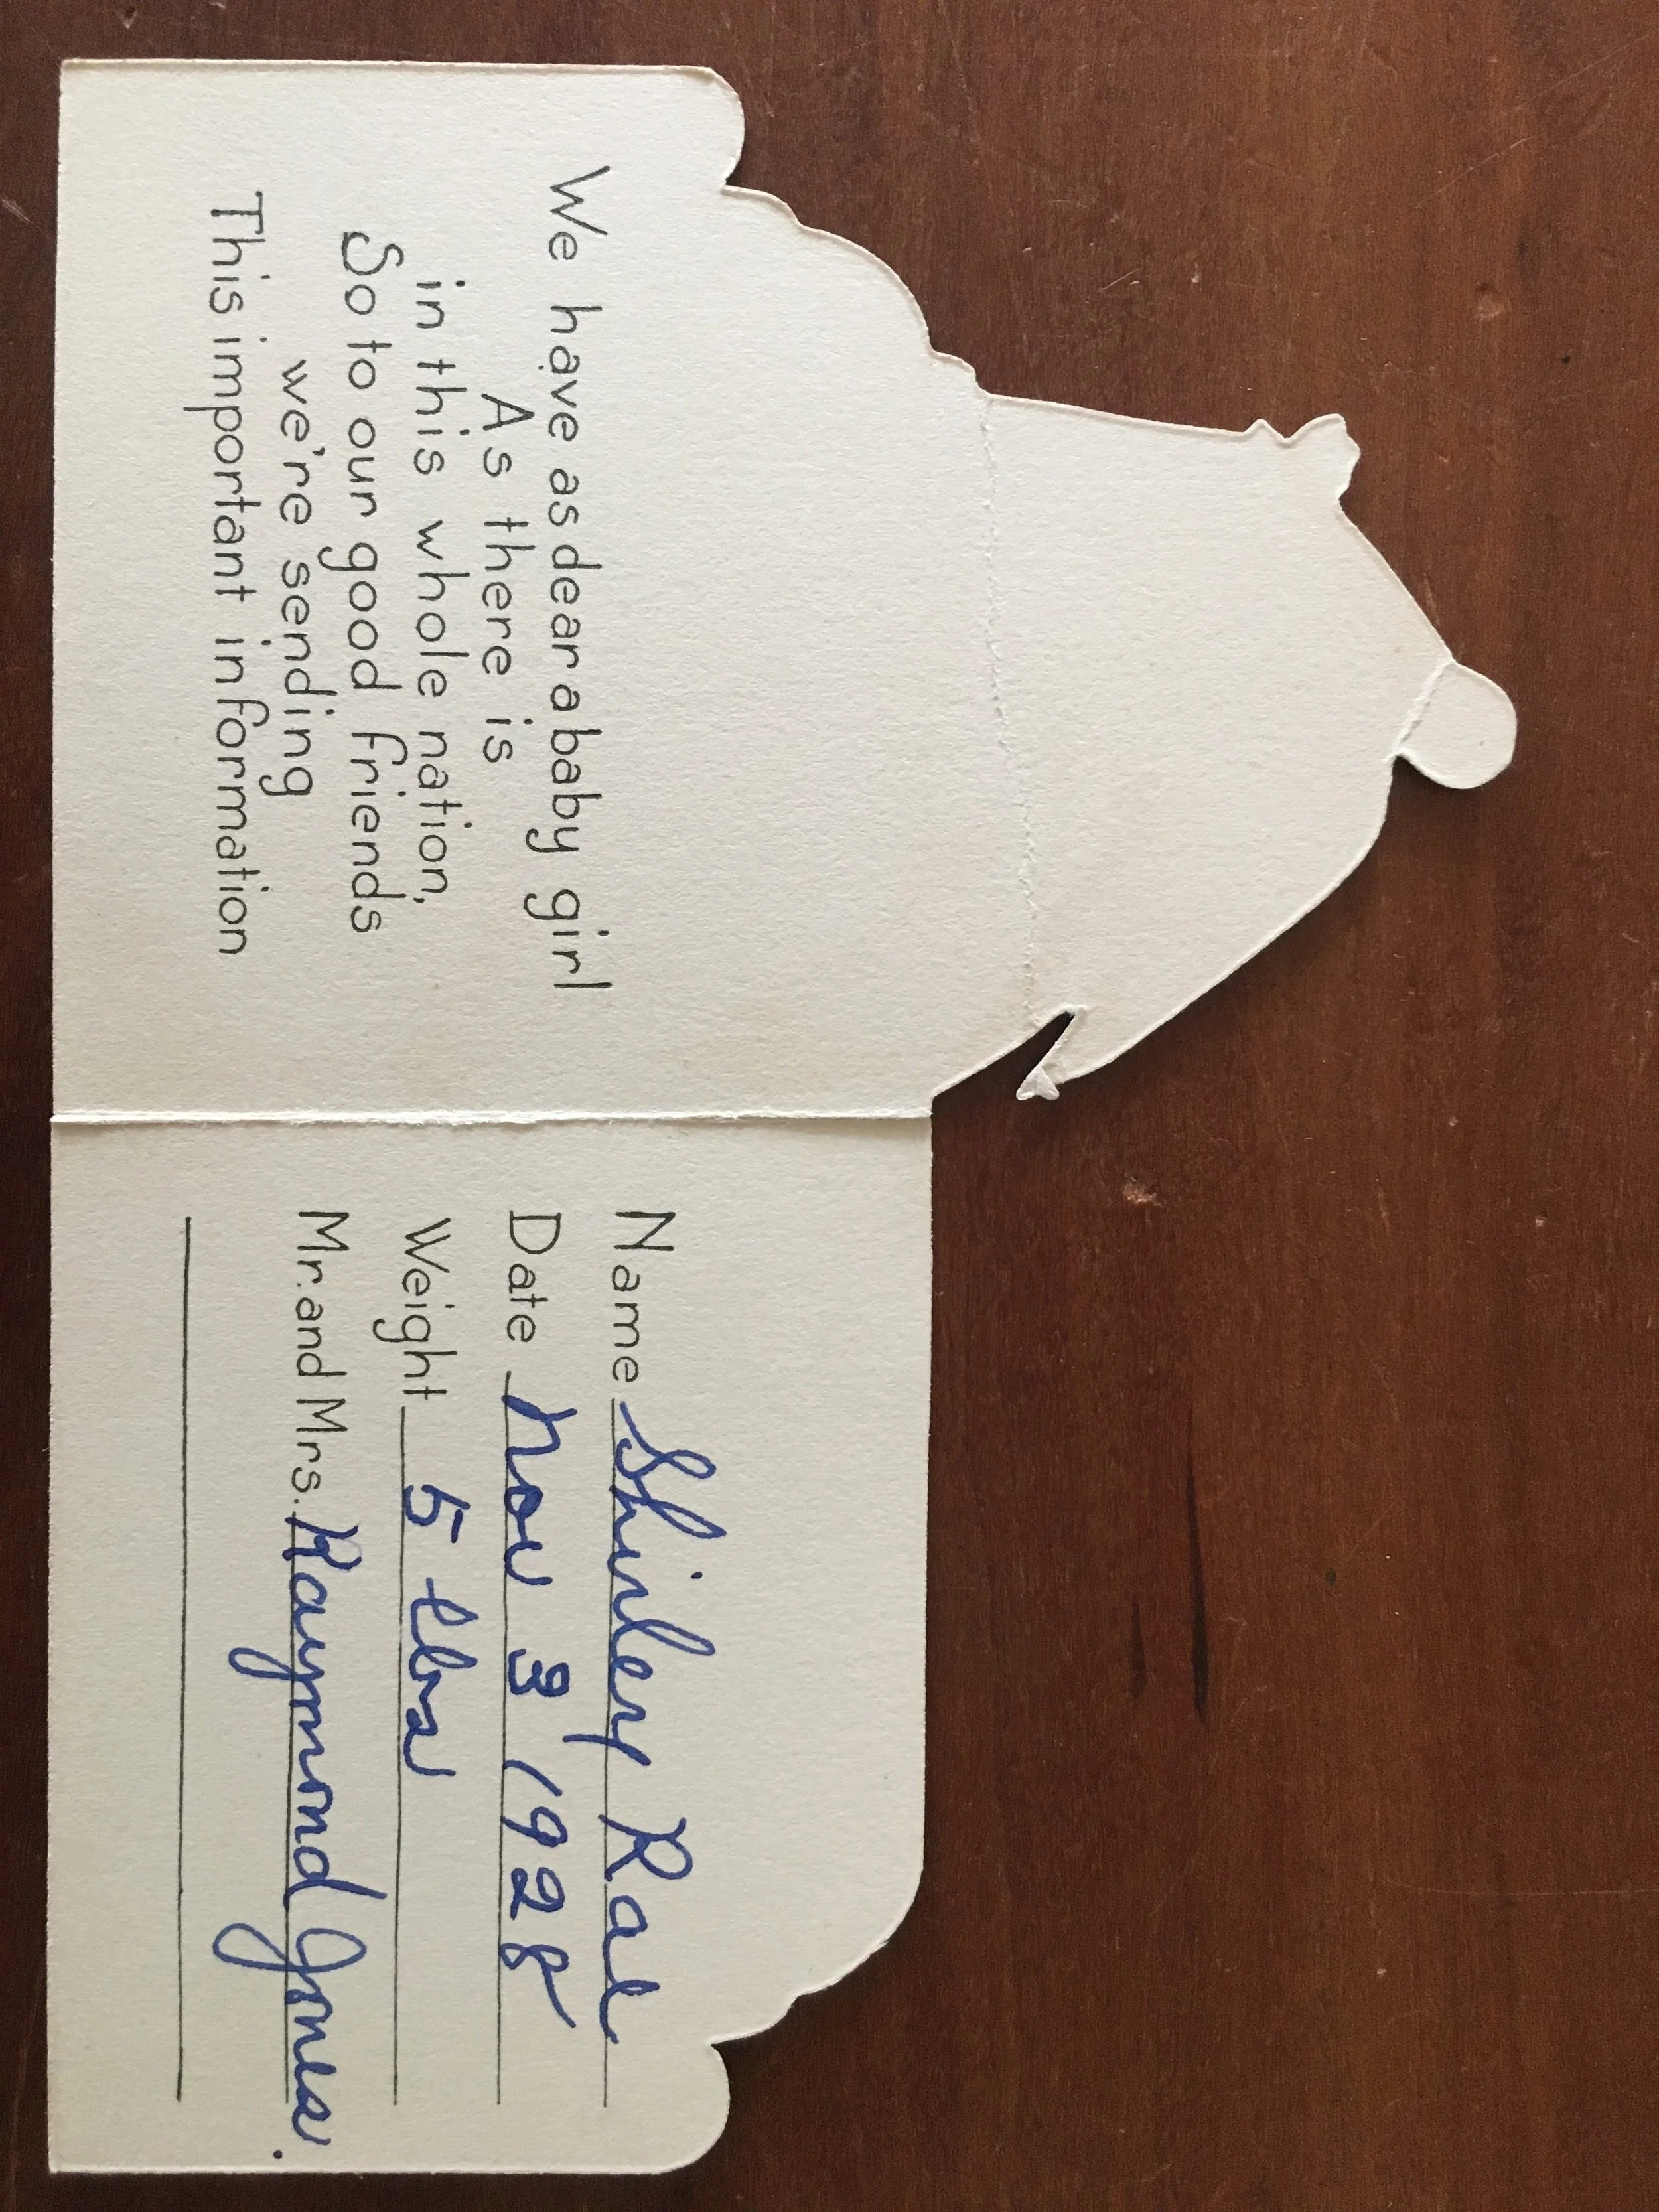 We have as dear a baby girl
As there is
in this whole nation,
So to our good friends
we're sending
This important information
Name Shirley Rae
Date Nov 3 1928
Weight 5 lbs
Mr. and Mrs. Raymond Jones.